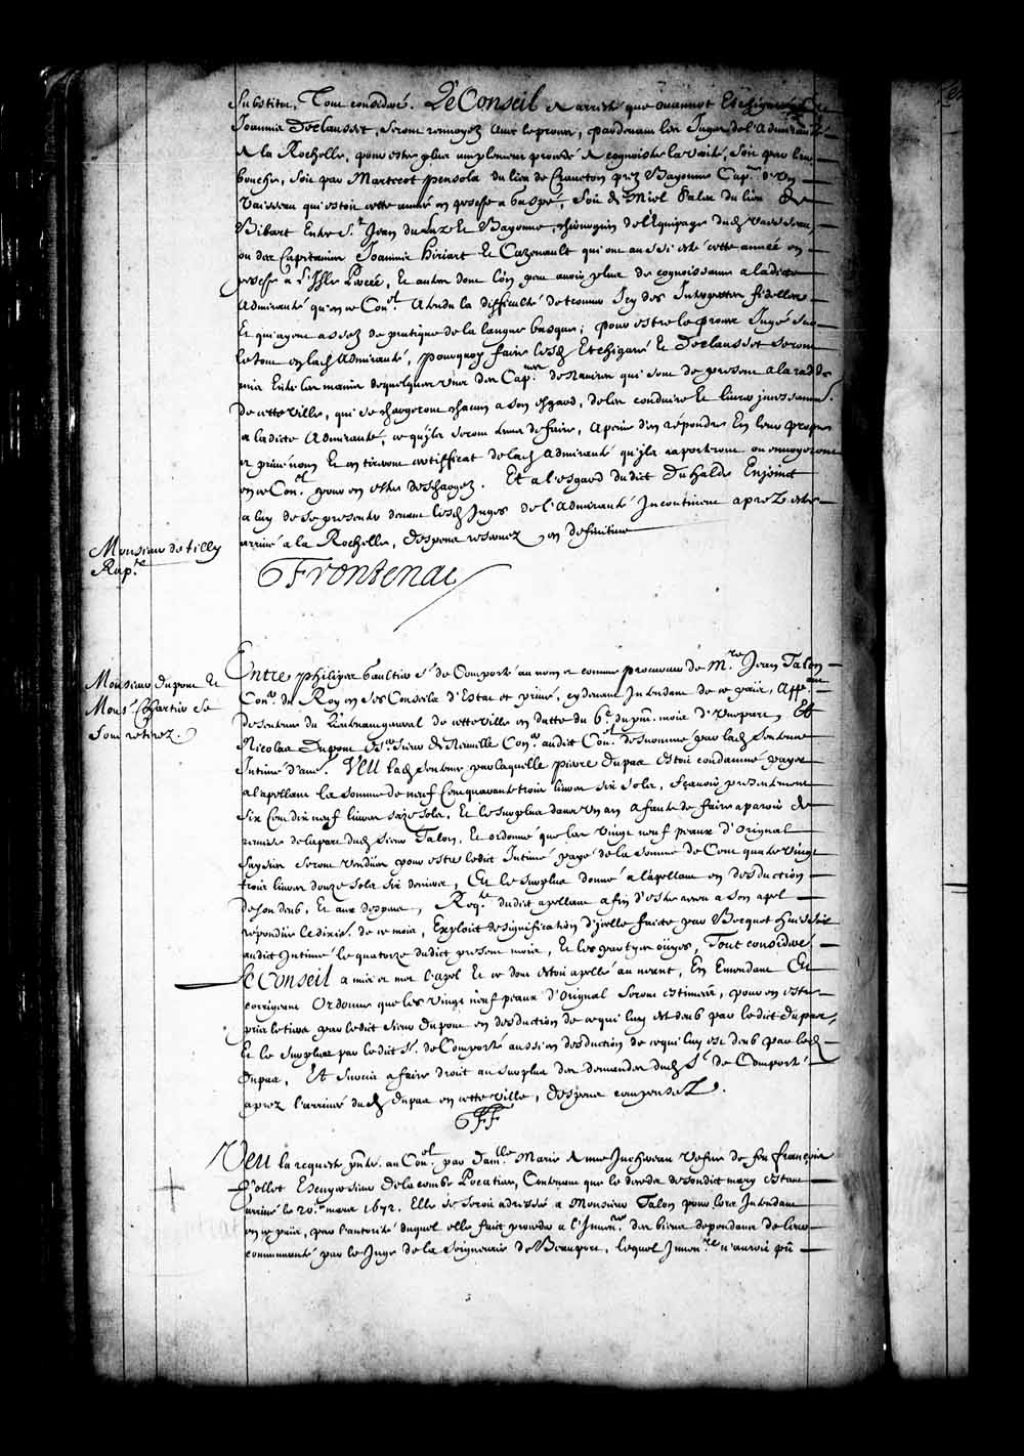 Substitut, Tout consideré. Le Conseil a arresté que Joannot Etchigaré et
Joannis Declausset, seront renvoyez avec le procez, pardevant les Juges de l'Admirauté
de la Rochelle, pour estre plus amplement procedé et cognoistre la verité, soit par leur
bouche, soit par Martecot pensola du lieu de prez Bayonne Cap.ne d'un
Vaisseau qui estoit cette année en pesche a Gaspé, soit de Miel Palais du lieu de
Bibart Entre S.t Jean du Luz et Bayonne, chirurgien de l'Equipage dud. vaisseau
ou des Capitaines Joannis Hiriart et Cazenault qui ont aussi esté cette année en
pesche a l'Isle Percée, et autres dont l'on peut avoir plus de cognoissance a ladicte
Admirauté qu'en ce Con.el Atendu la difficulté de trouver Icy des Interpretes fidelles
Et qui ayent assez de pratique de la langue basque; pour estre le procez Jugé sur
le tout en lad. Admirauté, pourquoy faire lesd. Etchigaré et Declausset seront
mis Entre les mains de quelques uns des Cap.nes de Navires qui sont de present a la rade
de cette ville, qui se chargeront chacun a son esgard, de les conduire et livrer
a ladicte Admirauté, ce qu'ils seront tenus de faire, a peine d'en répondre En leur propre
et privé nom et en tireront certifficat de lad. Admirauté qu'ils raporteront ou envoyeront
en ce Con.el pour en estre deschargez. Et a l'esgard dudict Duhalde Enjoinct
a luy de se presenter devant lesd. Juges de l'Admirauté Incontinent aprez estre
arrivé a la Rochelle, despens reservez en definitive
Monsieur de Tilly
Rap.r
Frontenac
Monsieur Dupont et
Mons.r Chartier se
sont retirez.
Entre Philipes Gaultier S.r de Comporté au nom et comme procureur de M.re Jean Talon
Con.er du Roy en ses Conseils d'Estat et privé, cy devant Intendant de ce païs, App.ant
de sentence du Lieutenant general de cette ville en datte du 6.e du p.nt mois d'une part, Et
Nicolas Dupont Es.r Sieur de Neuville Con.er audict Con.el desnommé par lad. sentence
Intimé d'au.e Veu lad. sentence par laquelle pierre Dupas estoit condamné payer
a l'apellant la somme de neuf Cent quarante trois livres six sols, sçavoir presentement
six Cent dix neuf livres seize sols, Et le surplus dans un an a faute de faire aparoir de
remise de la part dud. sieur Talon, Et ordonné que les vingt neuf peaux d'Orignal
saysies seront vendües pour estre ledict Intimé payé de la somme de Cent quatre vingt
trois livres douze sols six deniers, Et le surplus donné a l'apellant en desduction
de son deub, Et aux despens, Req.te dudict apellant afin d'estre receu a son apel
répondüe de ce mois, Exploit de signification d'icelle faicte par Becquet huissier
audict Intimé le quatorze dudict present mois, Et les partyes oüyes, Tout consideré
Le Conseil a mis et met l'apel Et ce dont estoit apellé au neant, En Emendant Et
corrigeant Ordonne que les vingt neuf peaux d'Orignal seront estimées, pour en estre
pris le tiers par ledict sieur Dupont en desduction de ce qui luy est deub par ledict Dupas,
Et le surplus par ledict S.r de Comporté aussi en desduction de ce qui luy est deub par led.
Dupas. Et surcis a faire droit au surplus des demandes dud. S.r de Comporté
aprez l'arrivée dud. Dupas en cette ville, despens compensez.
FF
Veu la requeste p.ntée au Con.el par Dam.lle Marie Anne Juchereau vefve de feu françois
Pollet Escuyer sieur de la combe Pocatiere, Contenant que le deceds de sondict mary estant
arrivé le 20.e mars 1672. Elle se seroit adressée a Monsieur Talon pour lors Intendant
en ce païs, par l'autorité duquel elle fait proceder a l'Inven.re des biens dependans de leur
communauté par le Juge de la Seigneurie de Beauport, lequel Inven.re n'auroit pû